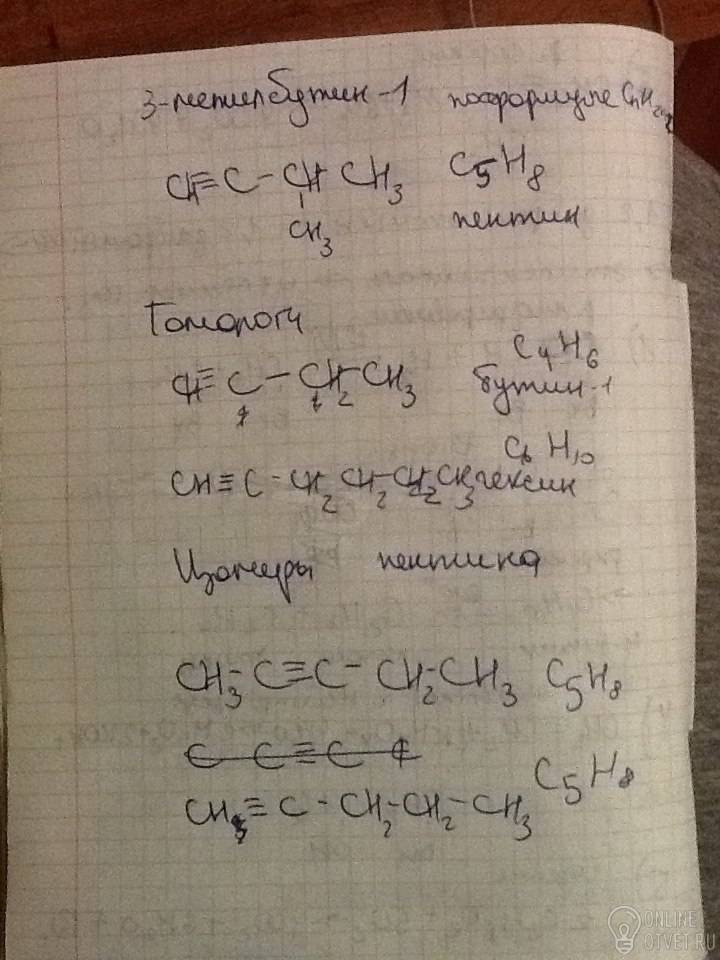 3-метилбутин-1 по формуле CnH2n-2
CH≡C-CH CH3 C5H8
CH3 пентин
Гомологи
C4H6
CH≡C-CH2-CH3 бутин-1
C6H10
CH≡C-CH2-CH2-CH2-CH3 гексин
Изомеры пентина
CH3-C≡C-CH2-CH3 C5H8
C C≡C C
CH≡C-CH2-CH2-CH3 C5H8
ONLINE
OTVET.RU